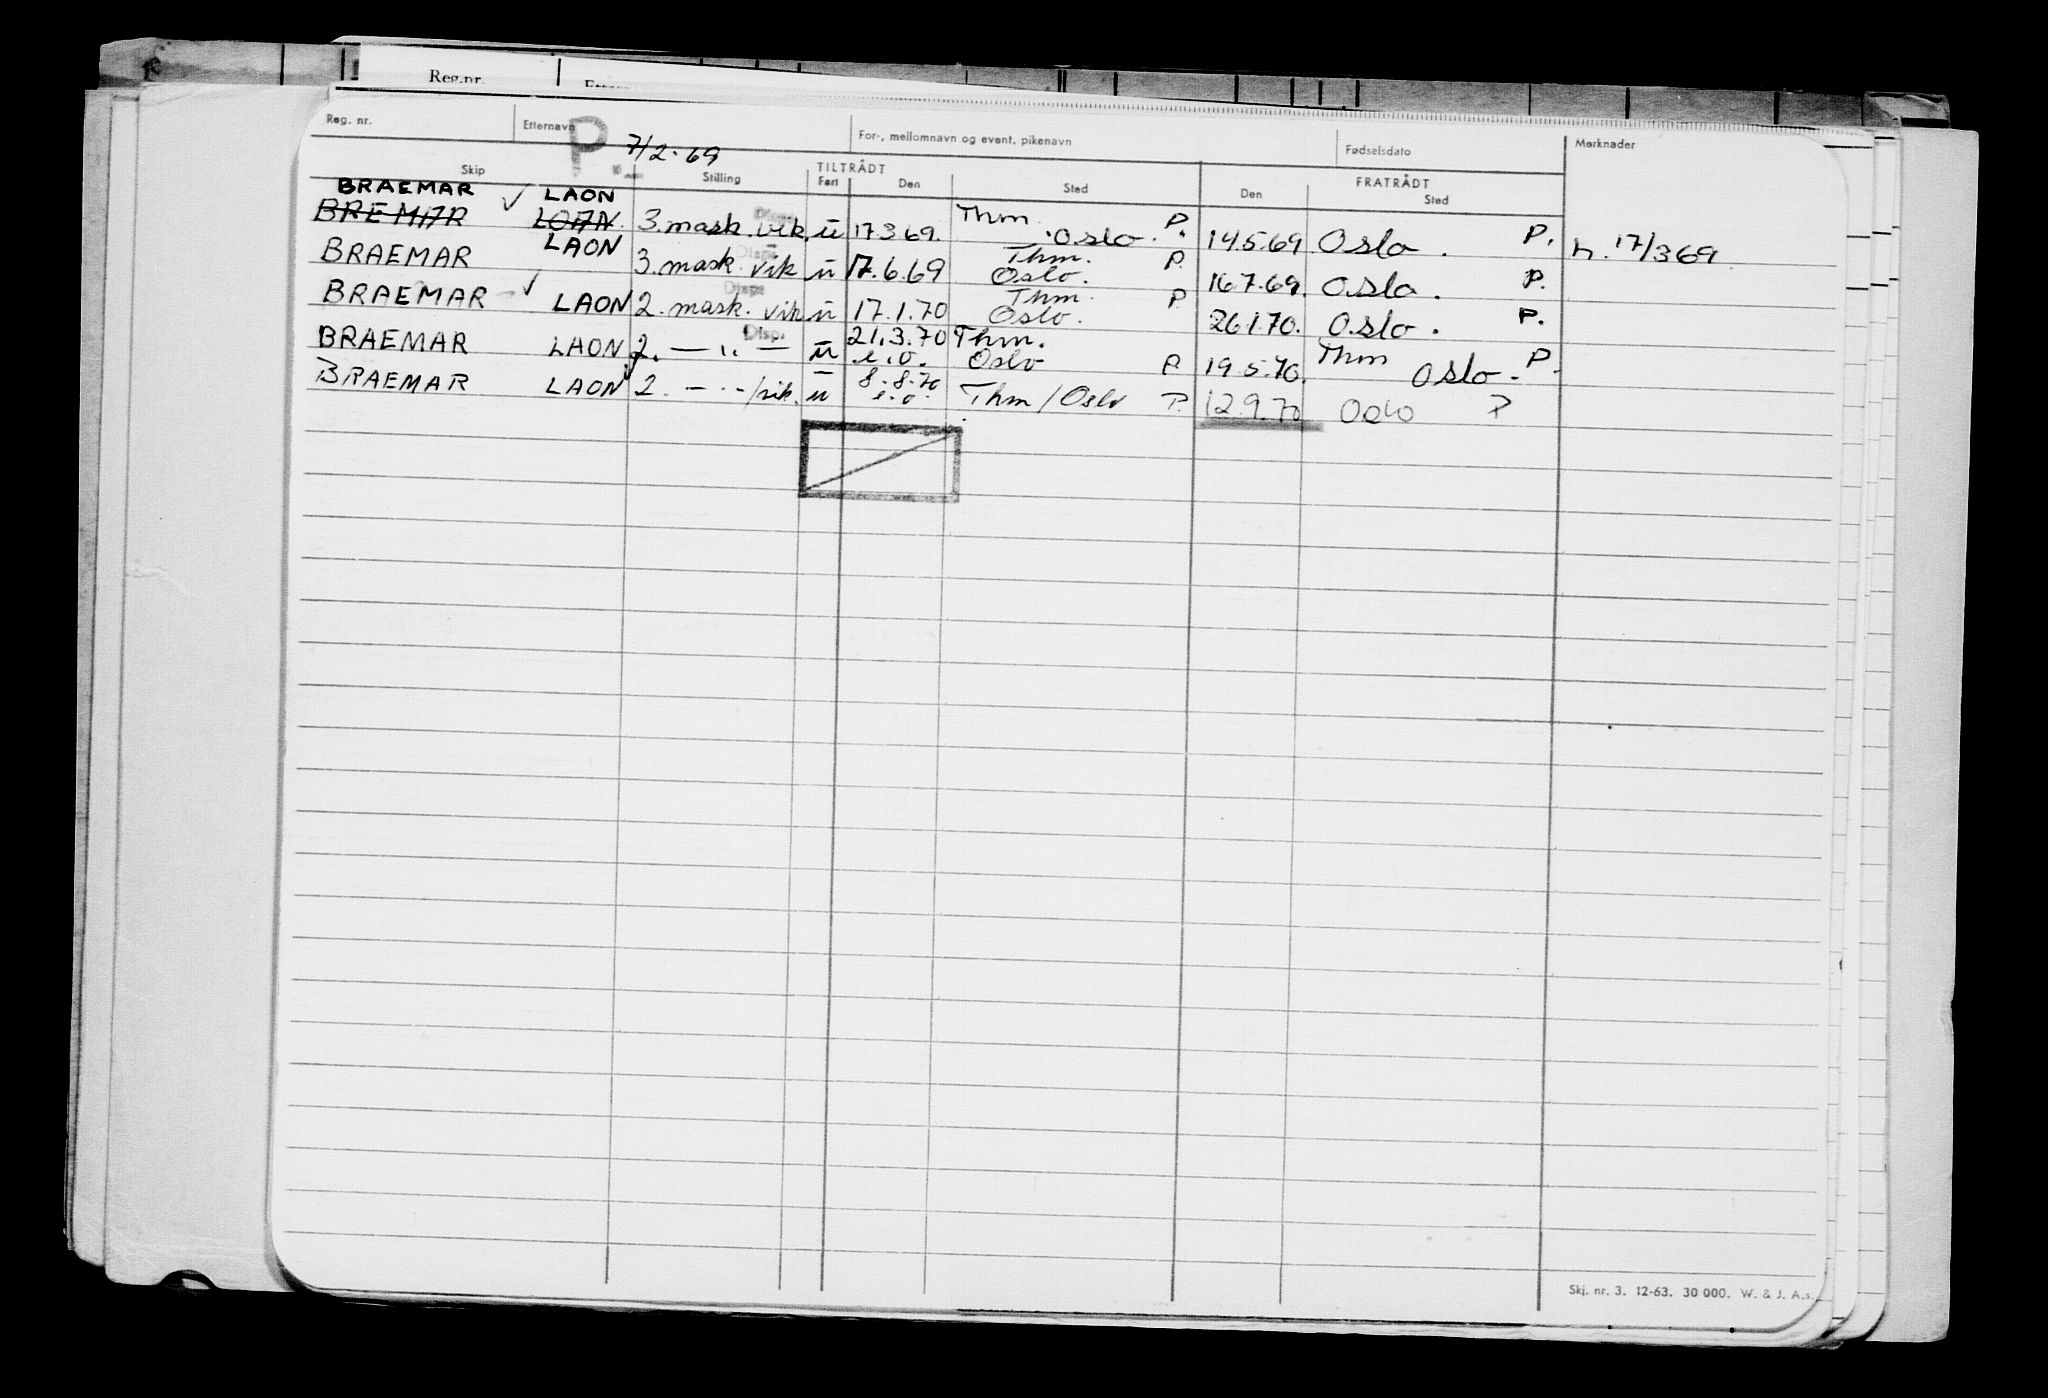 Reg.nr.
Reg. nr. Etternavn P. 7/2.69 For-, mellomnavn og event. pikenavn Fødselsdato Merknader
Skip Stilling TILTRÅDT FRATRÅDT
Fart Den Sted Den Sted
BRAEMAR ✓ LAON
BREMAR LOAN 3. mask. vik. Disp. u 17.3.69. Thm. Oslo. P. 14.5.69 Oslo. P. h. 17/3 69
BRAEMAR LAON 3. mask. vik Disp. u 17.6.69 Thm. Oslo. P. 16.7.69. Oslo. P.
BRAEMAR ✓ LAON 2. mask. vik Disp. u 17.1.70 Thm. Oslo. P 26.1.70. Oslo. P.
BRAEMAR LAON 2. — " — Disp. u 21.3.70 e.o. Thm. Oslo P 19.5.70. Thm Oslo. P.
BRAEMAR LAON 2. — " — /vik. u 8.8.70 e.o. Thm/Oslo P. 12.9.70 Oslo P
Skj. nr. 3. 12-63. 30 000. W. & J. A.s.